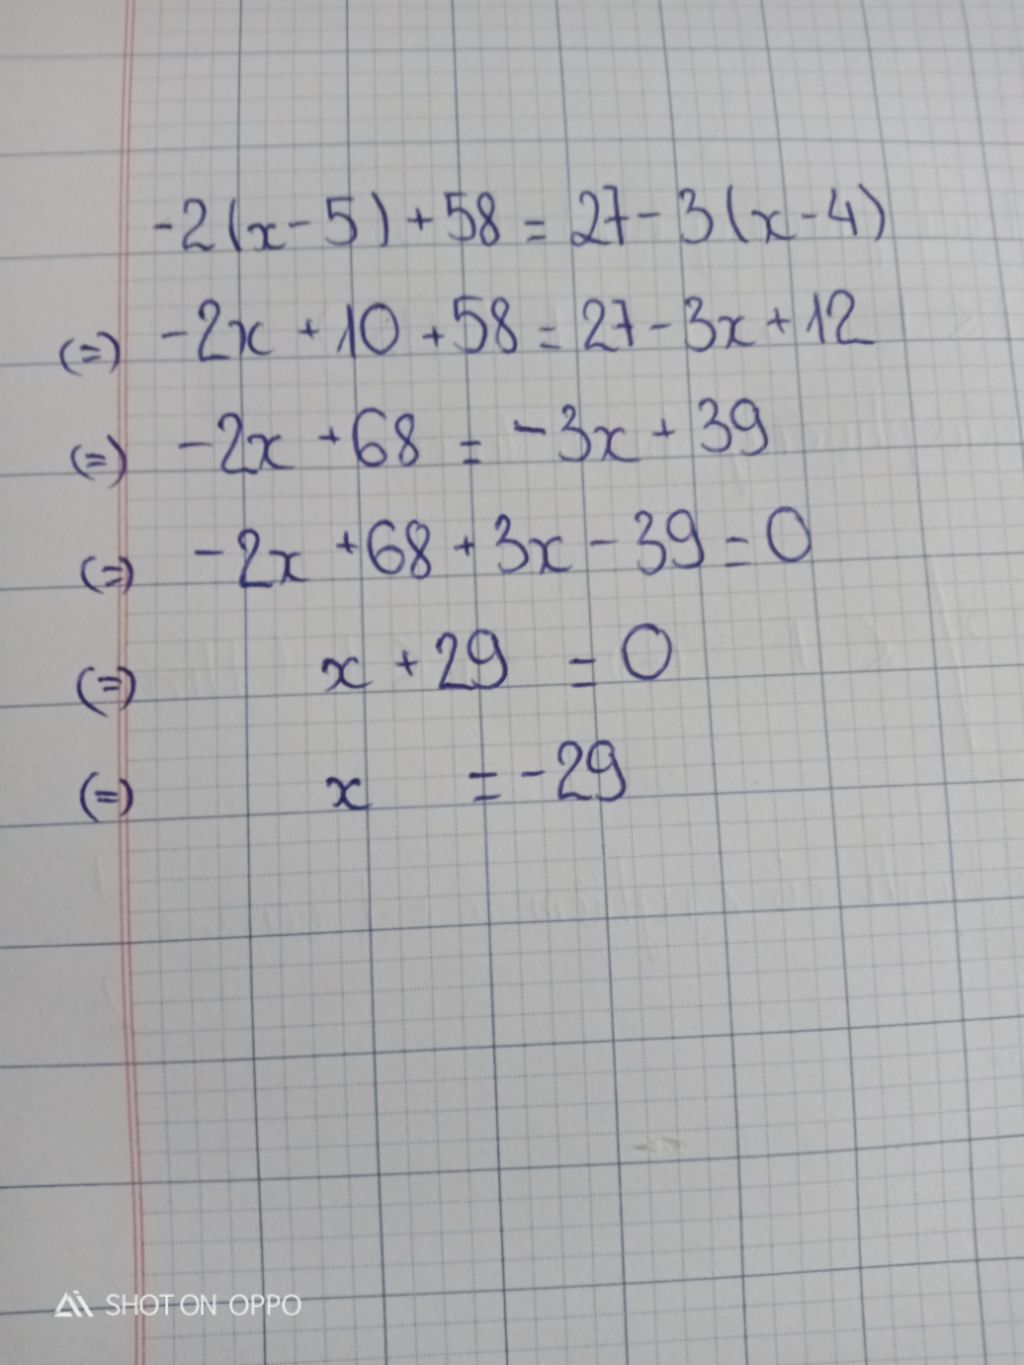 -2(x-5)+58=27-3(x-4)
(=) -2x+10+58=27-3x+12
(=) -2x+68=-3x+39
(=) -2x+68+3x-39=0
(=) x+29=0
(=) x=-29
SHOT ON OPPO